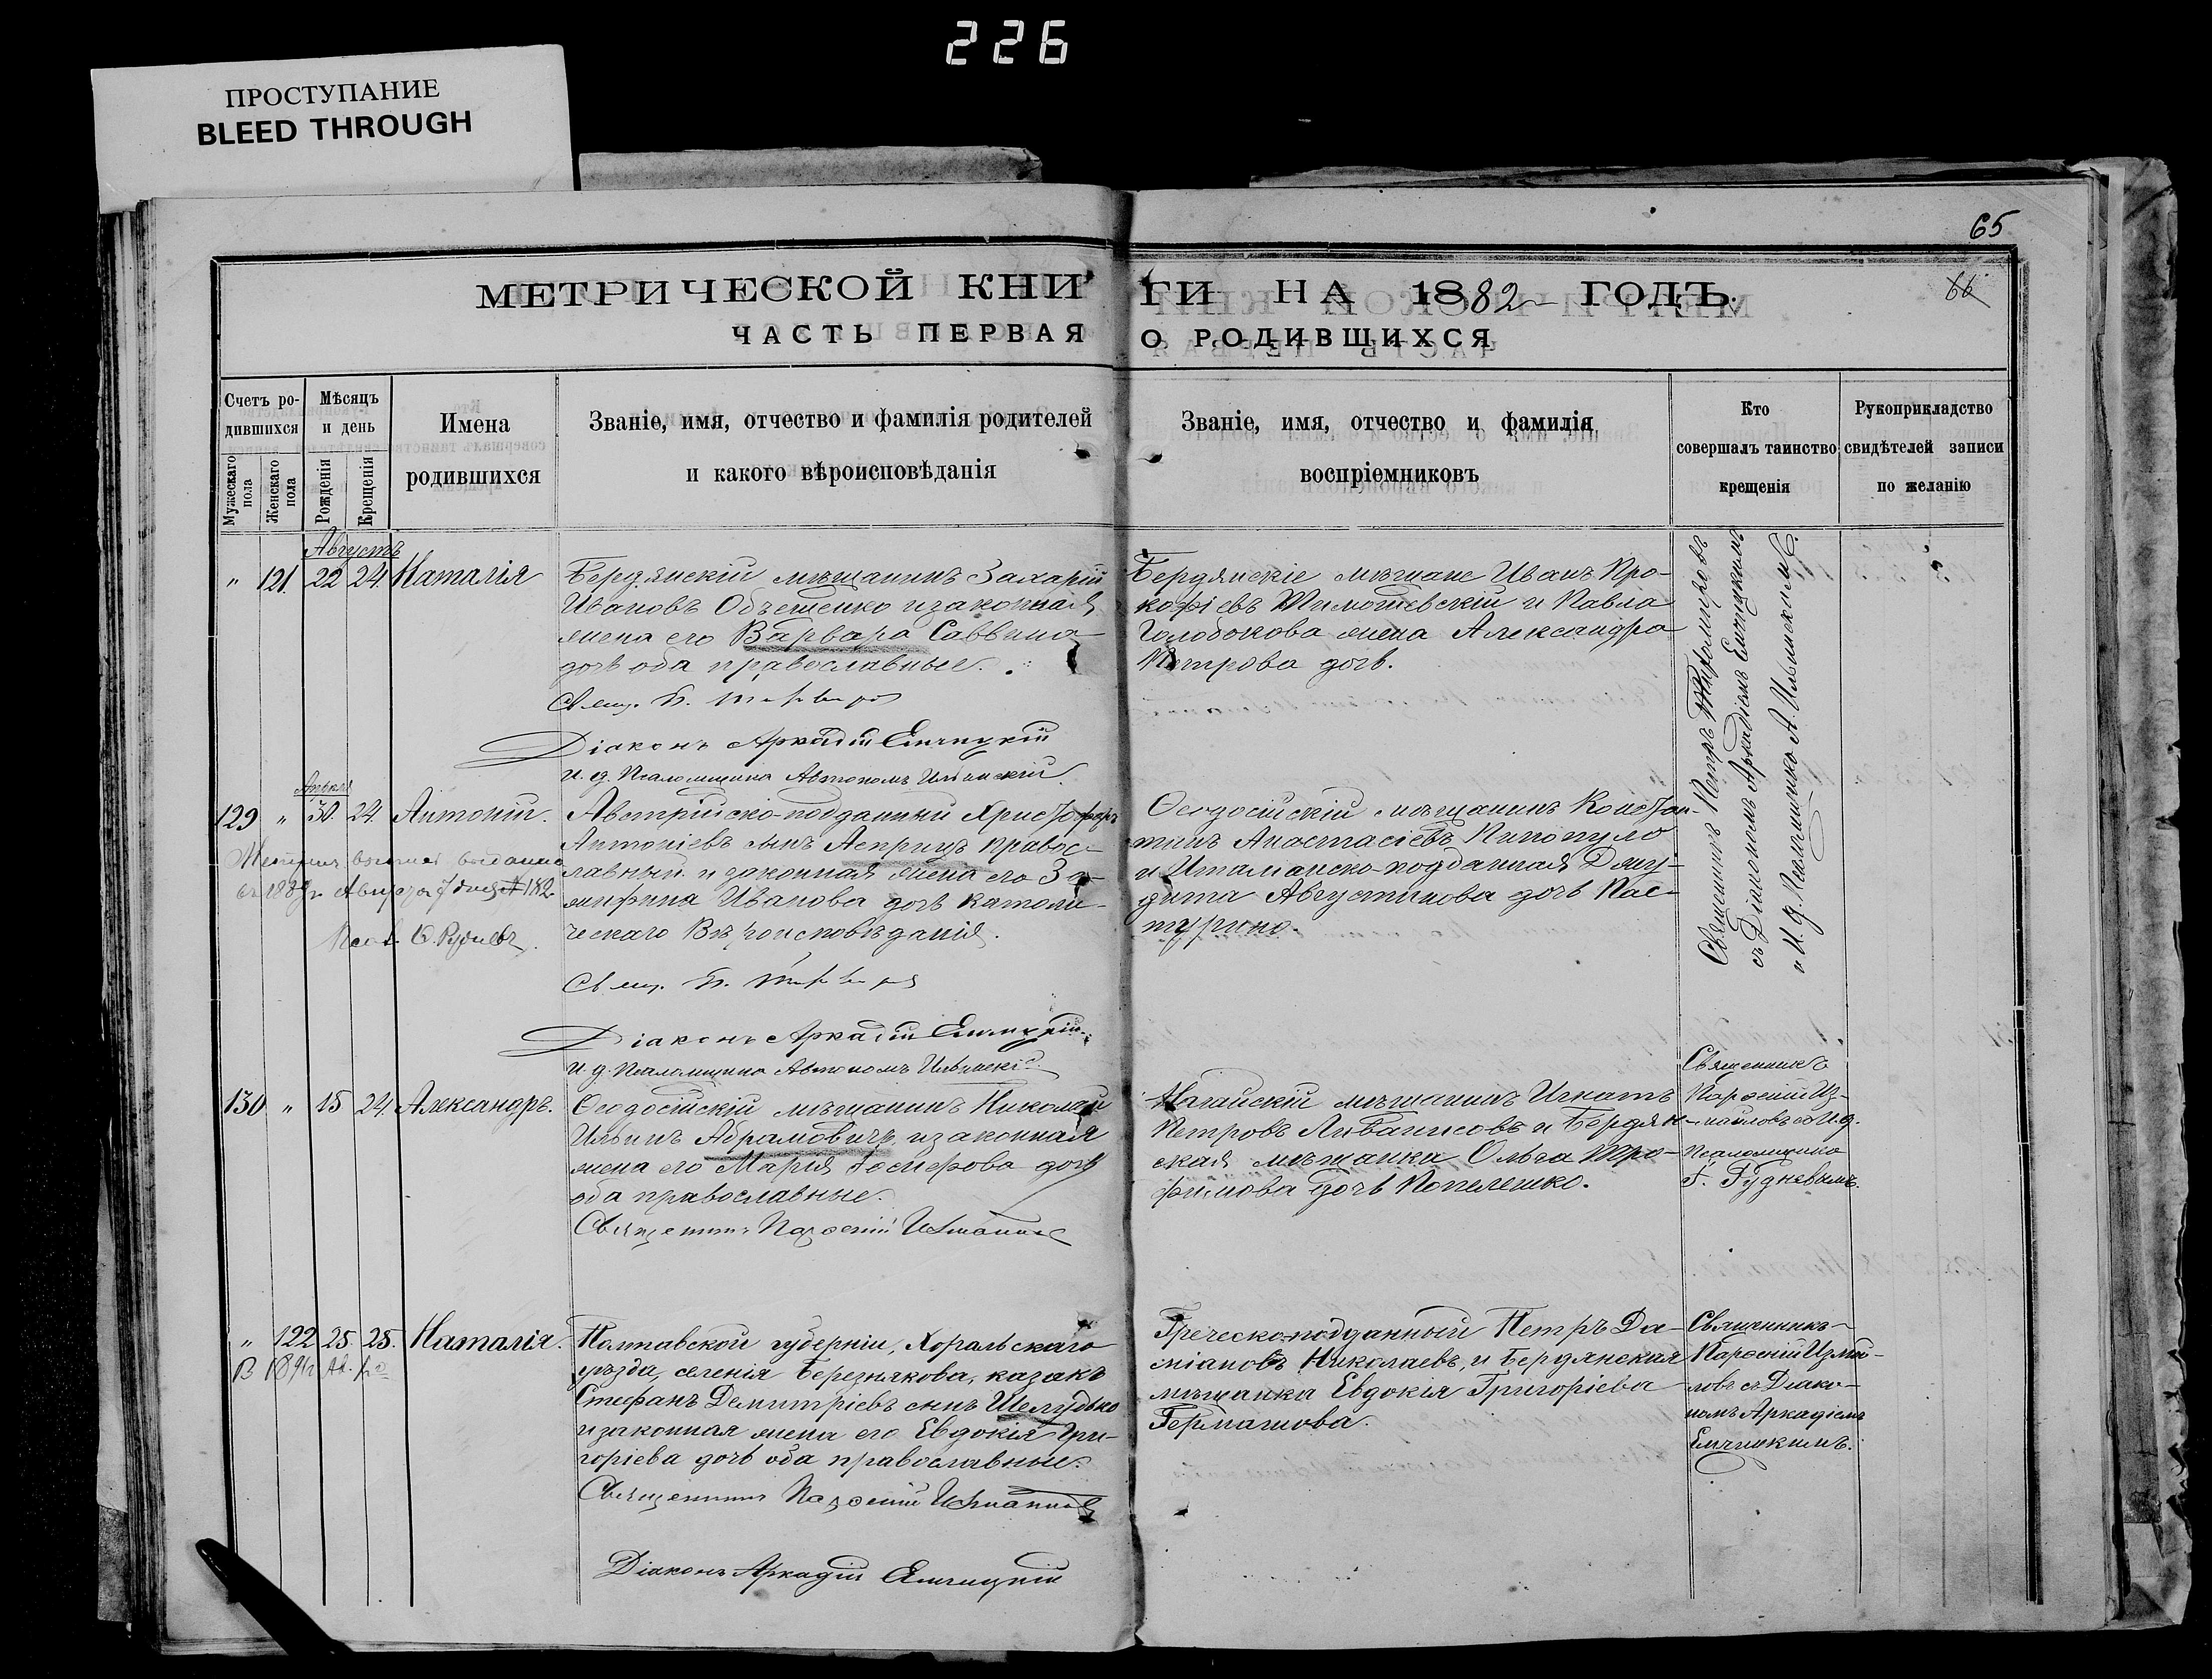 226
ПРОСТУПАНИЕ
BLEED THROUGH
65
66
МЕТРИЧЕСКОЙ КНИГИ НА 1882 ГОДЪ.
ЧАСТЬ ПЕРВАЯ О РОДИВШИХСЯ
Счетъ родившихся
Мужескаго пола
Женскаго пола
Мѣсяцъ и день
Рожденія
Крещенія
Имена родившихся
Званіе, имя, отчество и фамилія родителей
и какого вѣроисповѣданія
Званіе, имя, отчество и фамилія
воспріемниковъ
Кто
совершалъ таинство
крещенія
Рукоприкладство
свидѣтелей записи
по желанію
Августъ
" 121. 22 24 Наталія
Бердянскій мѣщанинъ Захарій
Ивановъ Объещенко и законная
жена его Варвара Саввина
дочь оба православные.
Свящ. П.
Діаконъ Аркадій Емчицкій
и. д. Псаломщика Автономъ Ильинскій
Бердянскіе мѣщане Иванъ Про-
кофіевъ Тимошевскій и Павла
Голобокова жена Александра
Петрова дочь.
Священникъ Петръ
съ Діакономъ Аркадіемъ Емчицкимъ
и И. д. Псаломщика А. Ильинскимъ.
Апрѣля
129 " 30. 24. Антоній.
Австрійско-подданный Христофоръ
Антоніевъ сынъ Асприцъ правос-
лавный и законная жена его
Иванова дочь католи-
ческаго Вѣроисповѣданія.
Свящ. П.
Діаконъ Аркадій Емчицкій
и. д. Псаломщика Автономъ Ильинскій
Ѳеодосійскій мѣщанинъ Констан-
тинъ Анастасіевъ Кипопуло
и Италіанско-подданная Джу-
дита Августинова дочь Пас-
турино.
130 " 15 24. Александръ.
Ѳеодосійскій мѣщанинъ Николай
Ильинъ Абрамовичъ и законная
жена его Марія Іосифова дочь
оба православные.
Священникъ Парѳеній Измаиловъ
Ногайскій мѣщанинъ Игнатъ
Петровъ Ливанисовъ и Бердян-
ская мѣщанка Ольга Тро-
фимова дочь Попелешко.
Священникъ
Парѳеній Из-
маиловъ съ И. д.
Псаломщика
Г. Рудневымъ.
" 122 25. 25. Наталія.
Полтавской губерніи, Хоральскаго
уѣзда, селенія Березнякова, казакъ
Стефанъ Демитріевъ сынъ Шелудько
и законная жена его Евдокія Гри-
горіева дочь оба православные.
Священникъ Парѳеній Измаиловъ
Діаконъ Аркадій Емчицкій
Греческоподданный Петръ Да-
міановъ Николаевъ, и Бердянская
мѣщанка Евдокія Григоріева
Германова.
Священникъ
Парѳеній Измаи-
ловъ съ Діако-
номъ Аркадіемъ
Емчицкимъ.